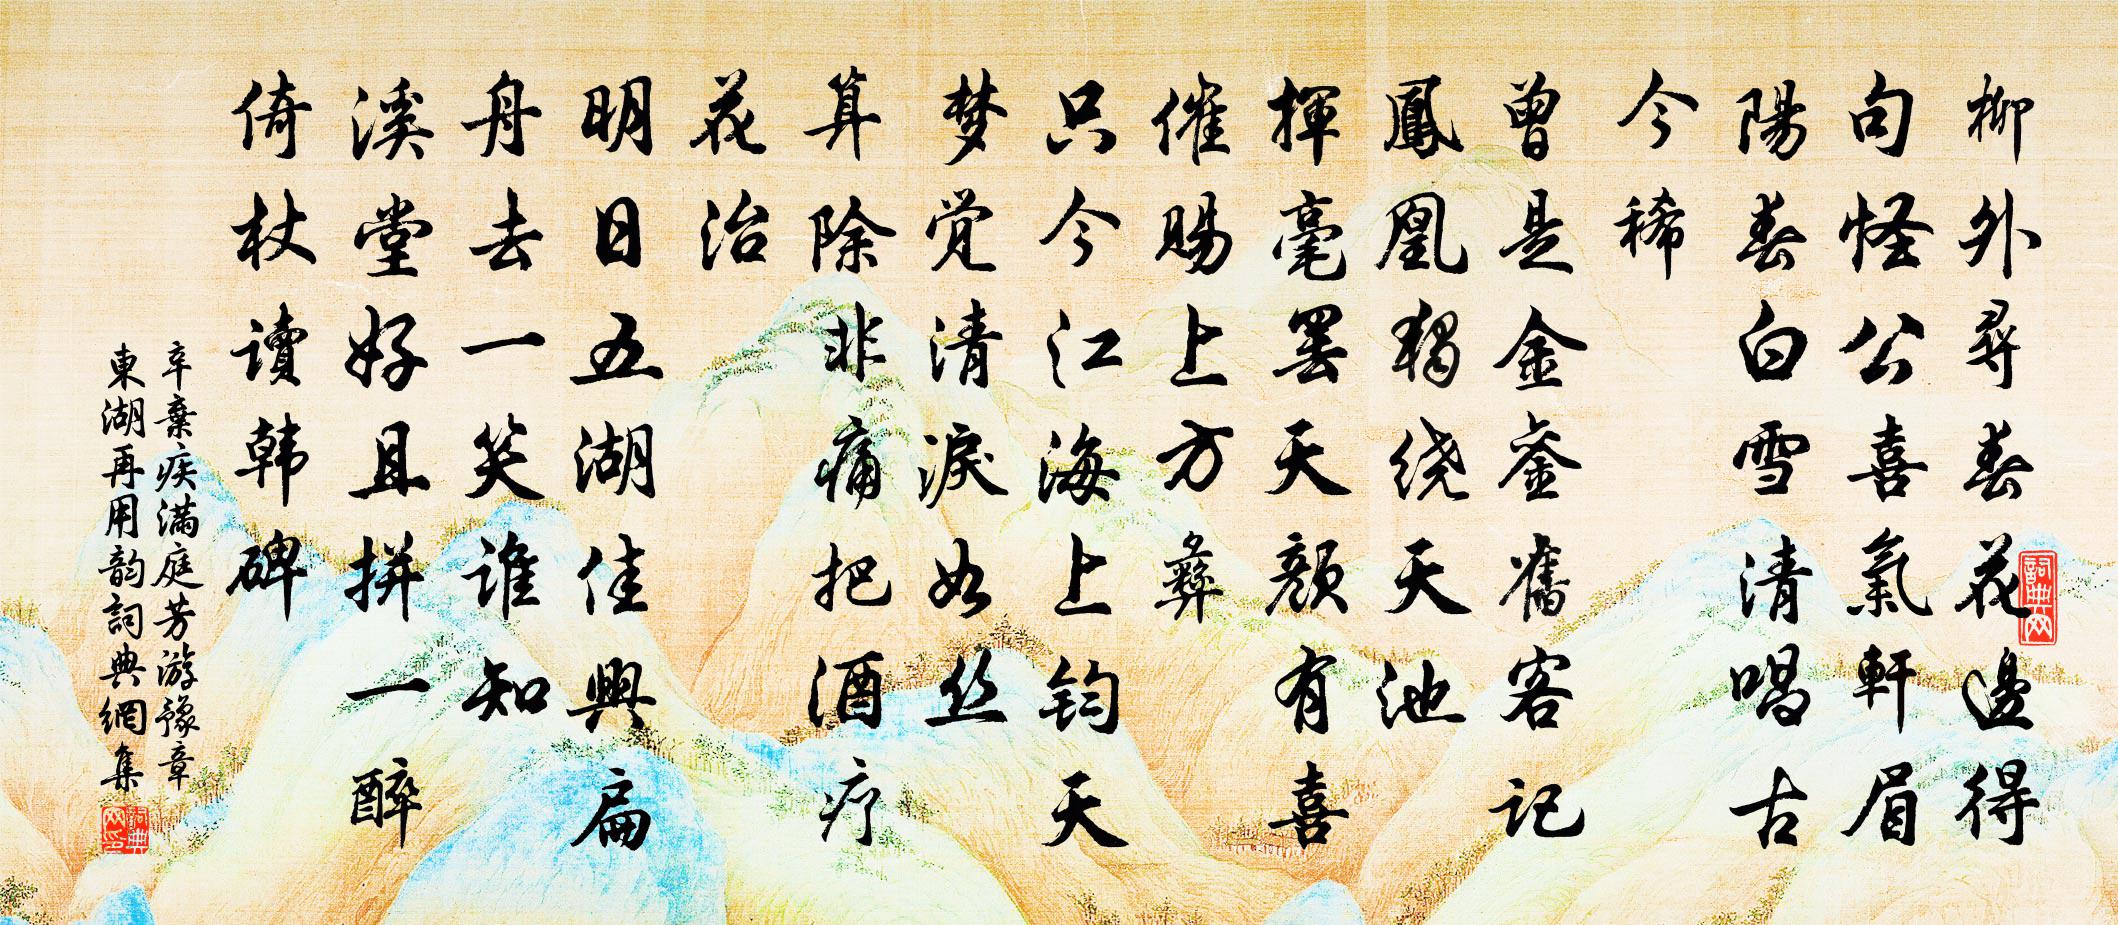 柳外尋春花邊得
句怪公喜氣軒眉
陽春白雪清唱古
今稀
曾是金銮舊客记
鳳凰獨绕天池
揮毫罢天颜有喜
催赐上方彝
只今江海上钧天
梦觉清淚如丝
算除非痛把酒疗
花治
明日五湖佳興扁
舟去一笑谁知
溪堂好且拼一醉
倚杖读韩碑
辛棄疾满庭芳游豫章
東湖再用韵詞典網集
詞典网
詞典网印